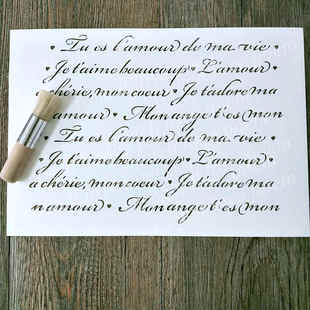 ♥ Tu es l'amour de ma vie ♥
Je t'aime beaucoup ♥ L'amour
a chérie, mon coeur ♥ Je t'adore ma
amour ♥ Mon ange t'es mon
Tu es l'amour de ma vie ♥
♥ Je t'aime beaucoup ♥ L'amour ♥
a chérie, mon coeur ♥ Je t'adore ma
n amour ♥ Mon ange t'es mon